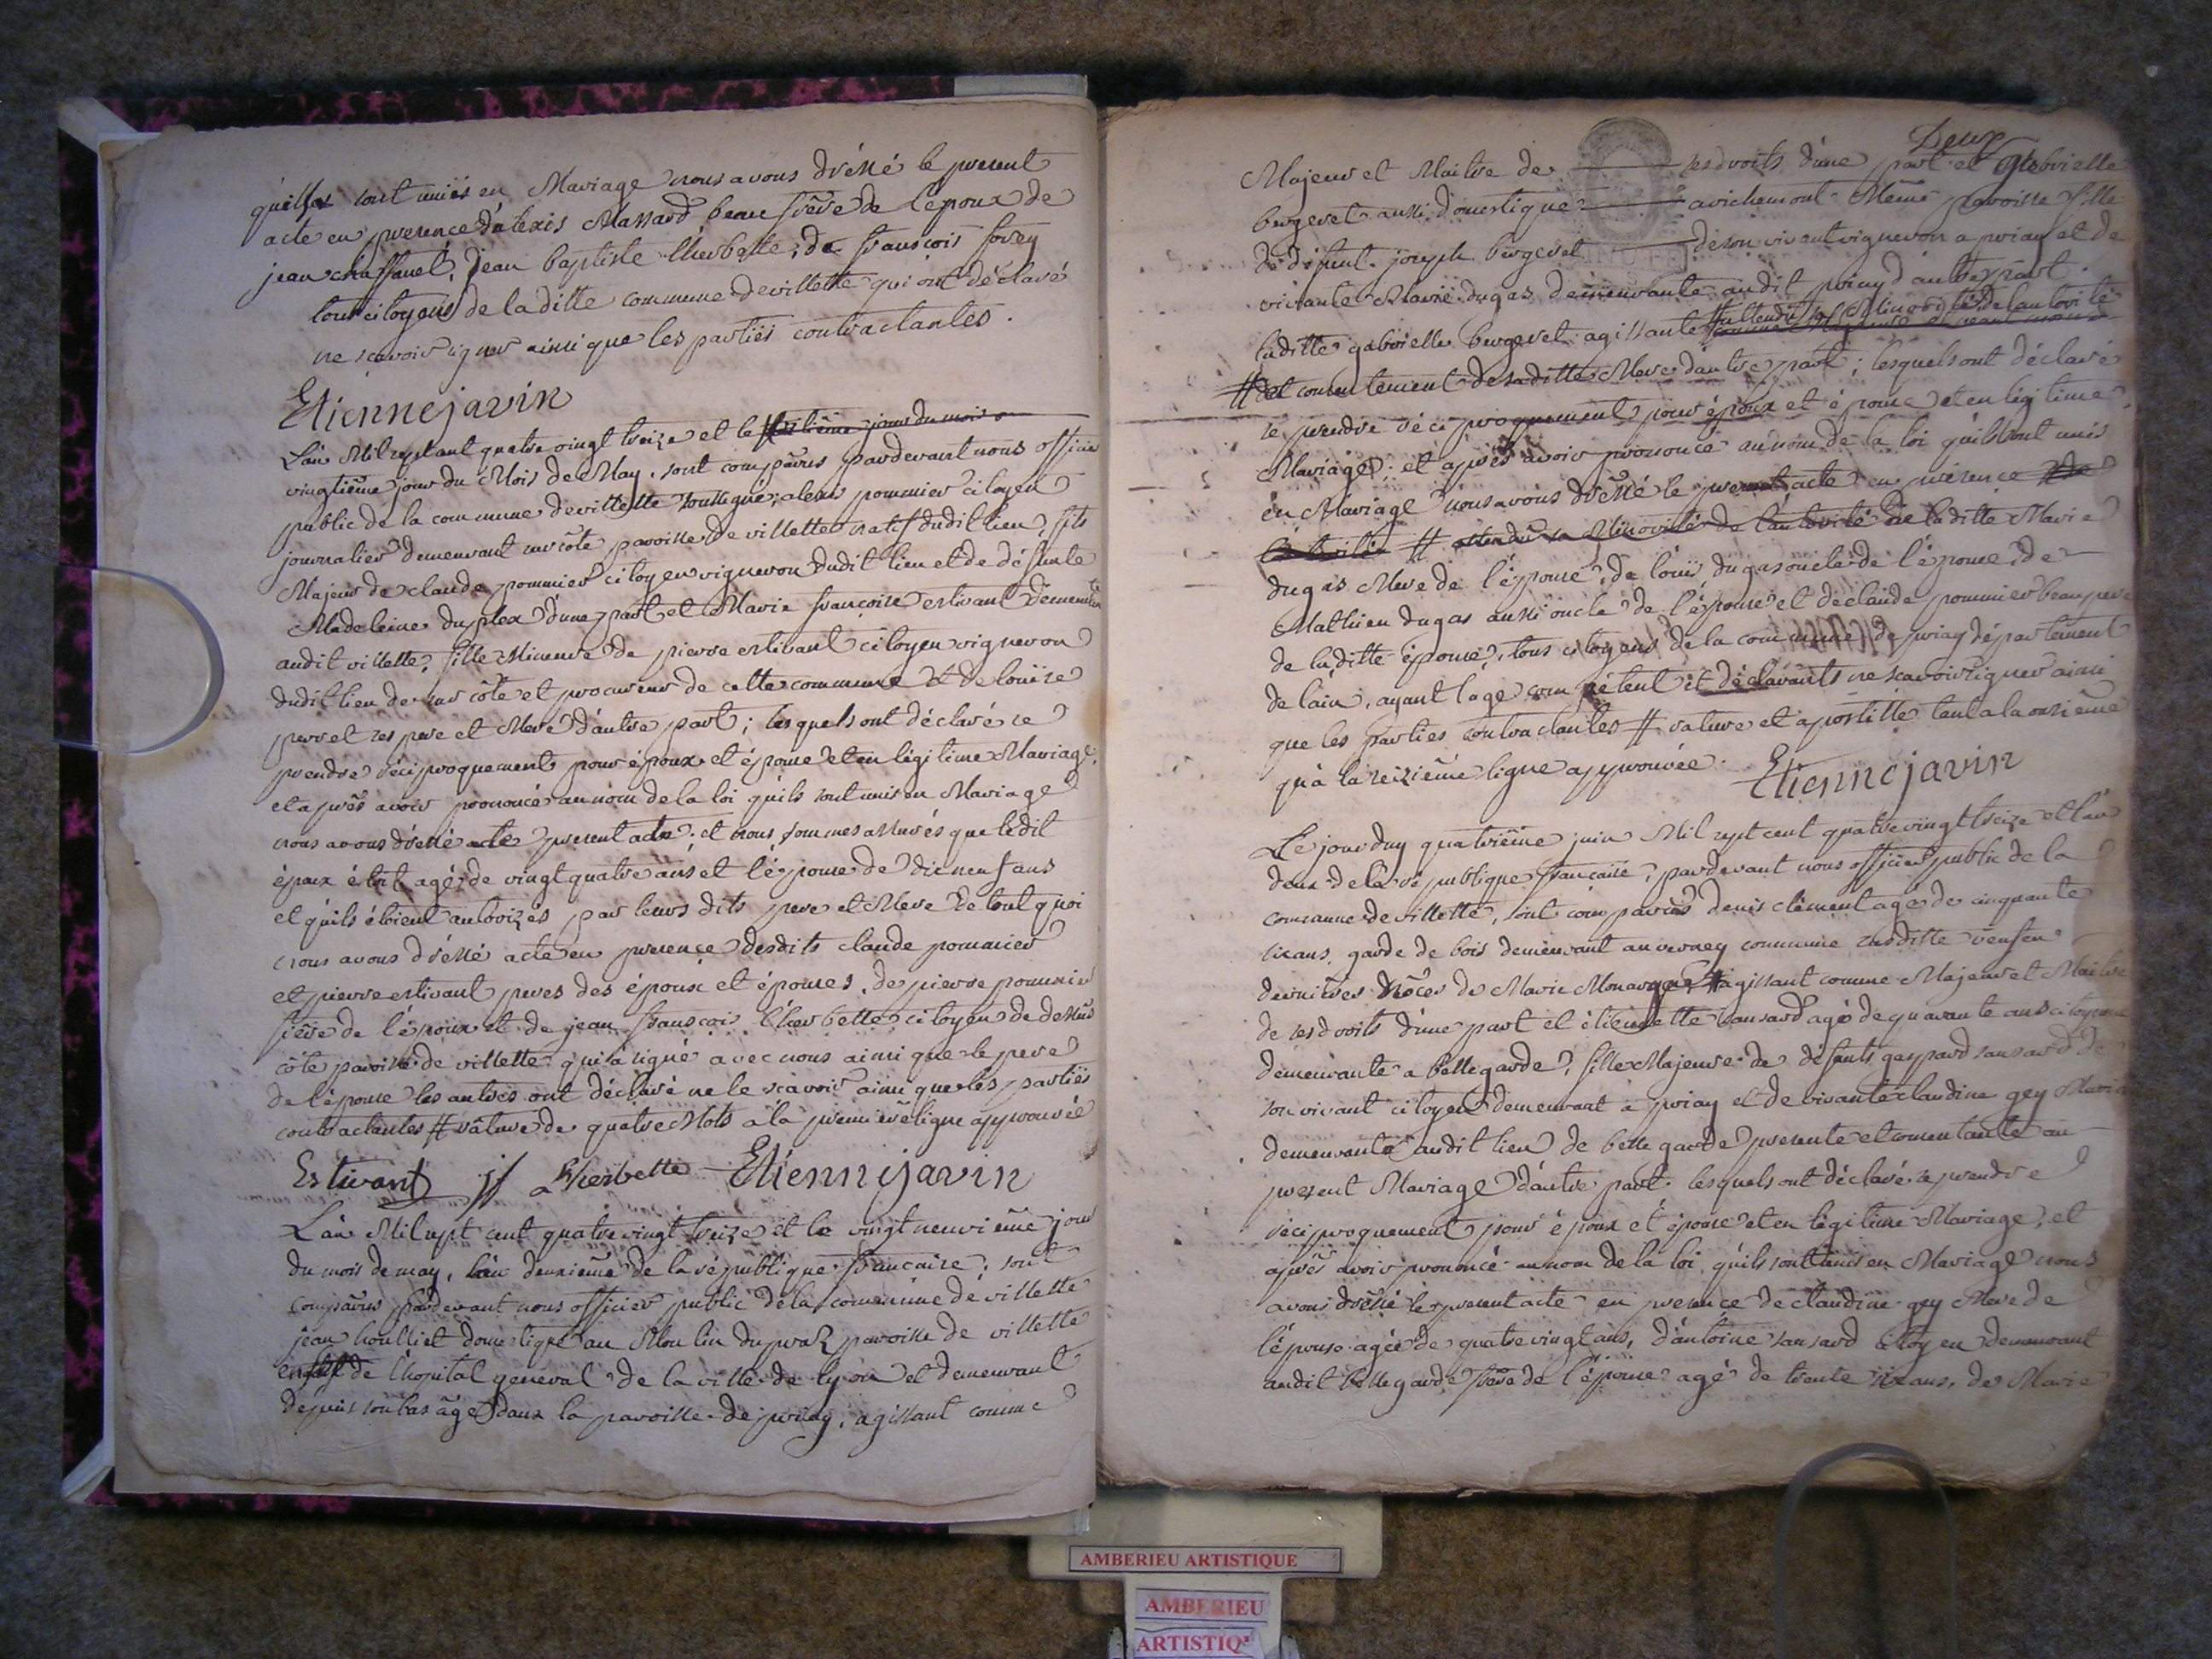 quils sont unies en Mariage nous avons dréssé le present
acte en presence d'alexis Massard beau frère de l'epoux de
jean chaffanel, jean baptiste lherbette, de françois forey
tous citoyens de laditte commune devillette qui ont déclaré
ne scavoir signer ainsi que les partiës contractantes.
Etiennejavin
L'an Mil sept cent quatre vingt treize et le jour du mois
vingtième jour du Mois de May, sont comparus pardevant nous officier
public de la commune devillette soussigné; alexis pommier citoyen
journalier demeurant sur côte paroisse de villette natif dudit lieu, fils
Majeur de claude pommier citoyen vigneron dudit lieu et de défunte
Madeleine duplex d'une part et Marie françoise estivant demeurante
audit villette, fille Mineure de pierre estivant citoyen vigneron
dudit lieu de sur côte et procureur de cette commune et de louise
perret ses pere et Mere d'autre part; lesquels ont déclaré se
prendre réciproquement pour époux et épouse et en légitime Mariage,
et après avoir prononcé au nom de la loi quils sont unis en Mariage
nous avons dréssé acte present acte; et nous sommes assurés que ledit
époux étoit agé de vingt quatre ans et l'épouse de dix neuf ans
et quils étoient autorizés par leurs dits pere et Mere de tout quoi
nous avons dréssé acte en presence desdits claude pommier
et pierre estivant peres des époux et épouses, de pierre pommier
frère de l'époux et de jean françois lherbette citoyen de dessus
côte paroisse de villette qui a signé avec nous ainsi que le pere
de l'épouse les autres ont déclaré ne le scavoir ainsi que les partiës
contractantes # rature de quatre Mots a la premiere ligne approuvée
Estivant jf Lherbette Etiennejavin
L'an Mil sept cent quatre vingt treize et le vingt neuvième jour
du mois de may, l'an deuxieme de la république francaise, sont
comparus pardevant nous officier public de la commune de villette
jean houlliet domestique au Moulin du praz paroisse de villette
de lhopital general de la ville de lyon et demeurant
depuis son bas âge dans la paroisse de priay, agissant comme
Deux
Majeur et Maitre de ses droits d'une part et Gabrielle
bergeret aussi domestique a richemont Même paroisse fille
de défunt joseph bergeret de son vivant vigneron a priay et de
vivante Marie dugas demeurante audit priay d'autre part.
laditte gabrielle bergeret agissante attendu sa Minorité de lautorité
# et consentement de saditte Mere d'autre part; lesquels ont déclaré
se prendre réciproquement pour époux et épouse et en légitime
Mariage; et après avoir prononcé au nom de la loi quils sont unis
en Mariage nous avons dréssé le present acte en présence de
# attendu sa Minorité de lautorité de laditte Marie
dugas Mere de l'épouse, de louis dugas oncle de l'épouse, de
Mathieu dugas aussi oncle de l'épouse et de claude pommier beau pere
de laditte épouse, tous citoyens de la commune de priay département
de lain, ayant l'age compétent et déclarants ne scavoir signer ainsi
que les parties contractantes # rature et apostille tant a la onzième
qu'à la seizième ligne approuvée.
Etiennejavin
Le jourduy quatrième juin Mil sept cent quatre vingt treize et l'an
deux de la république francaise, pardevant nous officier public de la
commune de villette, sont comparus denis clément agé de cinquante
six ans, garde de bois demeurant au verney commune susditte veuf en
dernieres nôces de Marie Monarque # agissant comme Majeur et Maitre
de ses droits d'une part et étiennette sansard agé de quarante ans citoyenne
demeurante a bellegarde, fille Majeure de défunts gaspard sansard de
son vivant citoyen demeurant a priay et de vivante claudine gey Marie
demeurante audit lieu de bellegarde presente et consentante au
present Mariage d'autre part. lesquels ont déclaré se prendre
réciproquement pour époux et épouse et en légitime Mariage, et
après avoir prononcé au nom de la loi quils sont unis en Mariage nous
avons dréssé le present acte en presence de claudine gey Mere de
l'épouse agée de quatre vingt ans, d'antoine sansard citoyen demeurant
audit bellegarde frere de l'épouse agé de trente six ans, de Marie
AMBERIEU ARTISTIQUE
AMBERIEU
ARTISTIQ